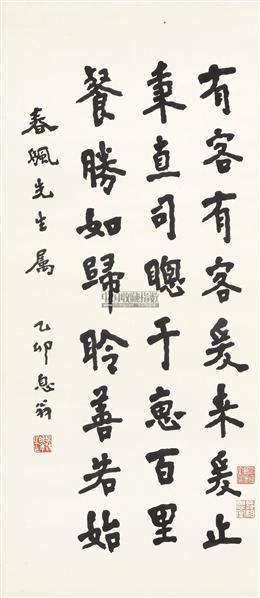 有客有客爰来爰止
秉直司聪于惠百里
飡勝如歸聆善若始
春颿先生属
乙卯息翁